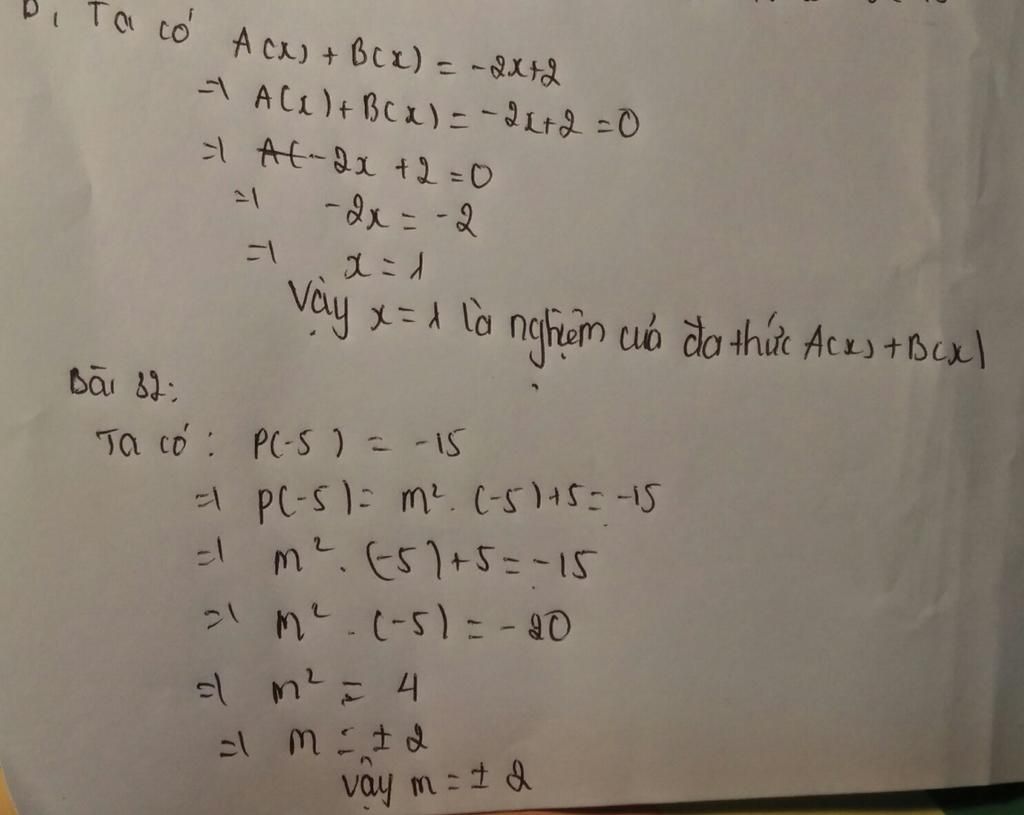 b, Ta có A(x) + B(x) = -2x+2
=> A(x) + B(x) = -2x+2 = 0
=> -2x + 2 = 0
=> -2x = -2
=> x = 1
Vậy x = 1 là nghiệm của đa thức A(x) + B(x)
Bài 32:
Ta có: P(-5) = -15
=> P(-5) = m². (-5)+5 = -15
=> m². (-5)+5 = -15
=> m². (-5) = -20
=> m² = 4
=> m = ± 2
Vậy m = ± 2